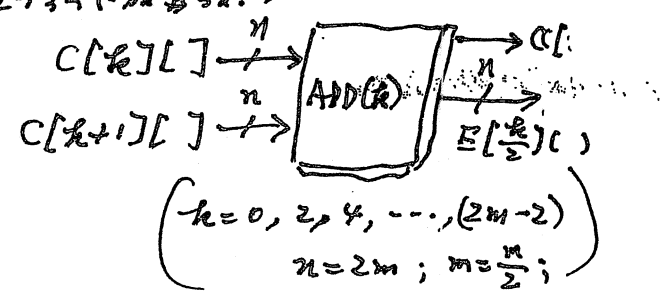 n
C[k][ ]
ADD(k)
n
n
C[k+1][ ]
E[k/2]( )
(k=0, 2, 4, ---, (2m-2)
n=2m ; m=n/2;)